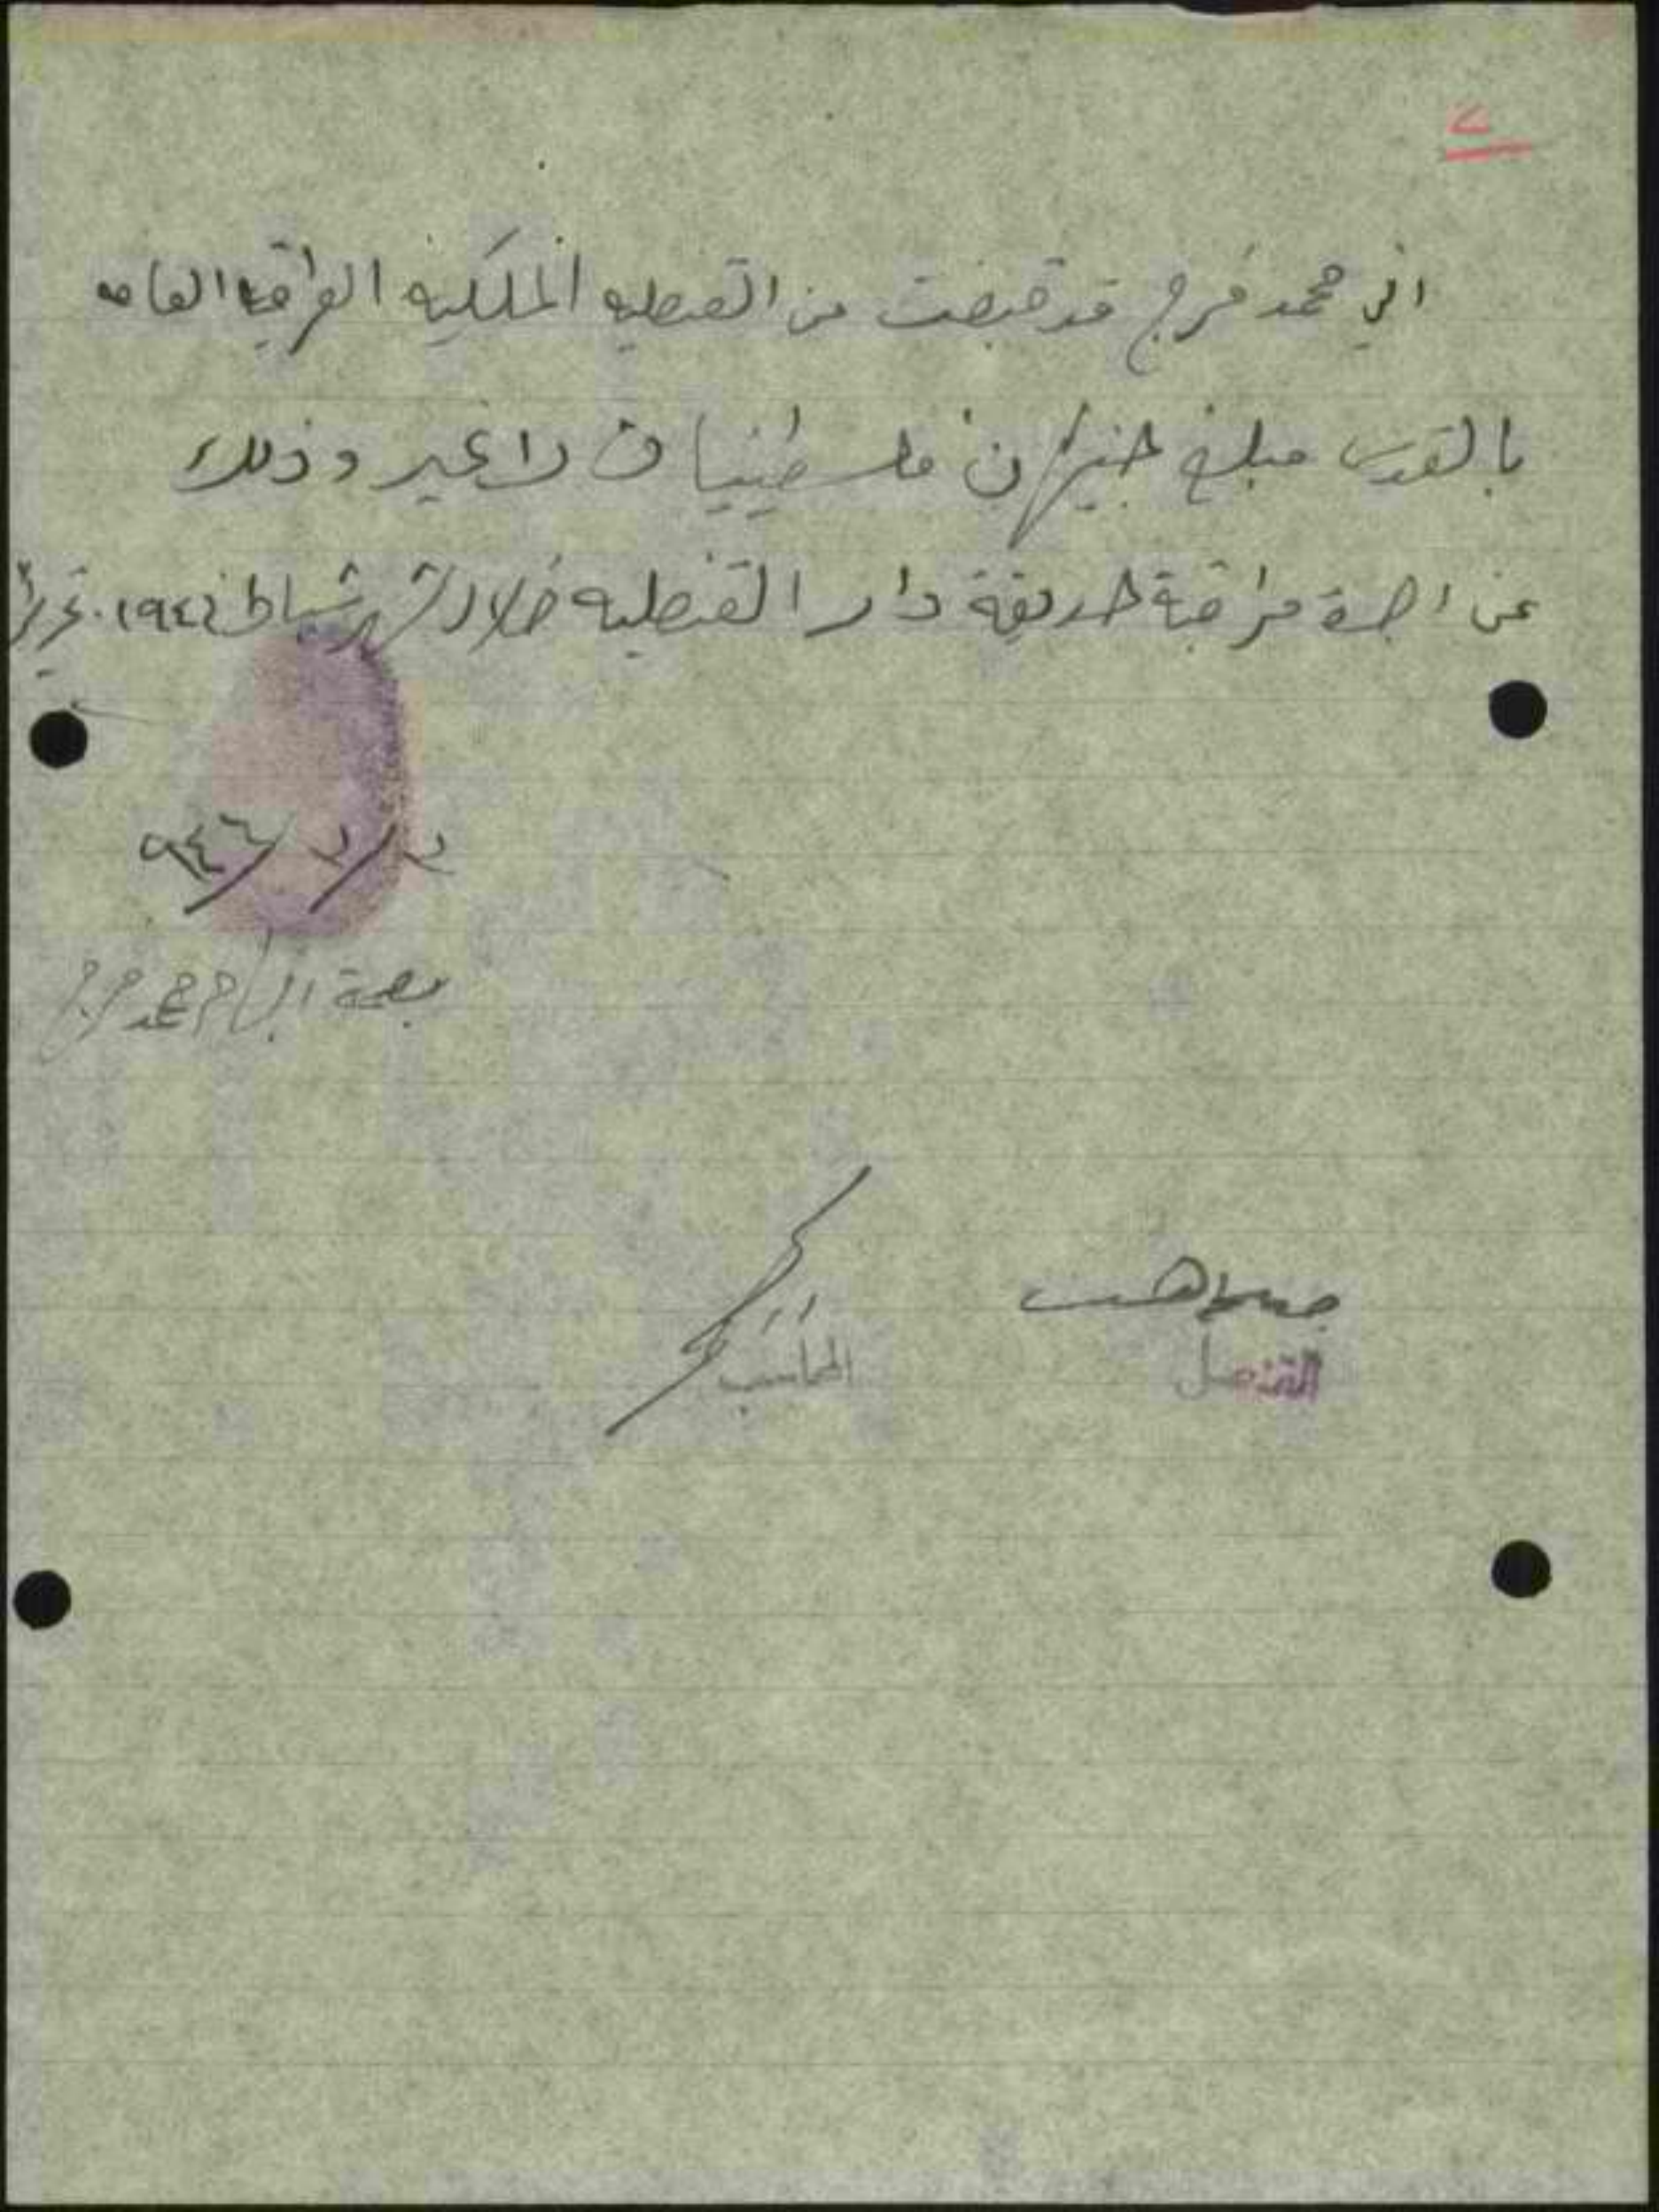 اني محمد فرج قد قبضت من القنصليه الملكيه العراقيه العامه
بالقدس مبلغ جنيهان فلسطينيان لا غير وذلك
عن اجرة مراقبة حديقة دار القنصليه خلال شهر شباط ١٩٤٦. تحريراً
٩٤٦
بصمة ابهام محمد فرج
المحاسب
القنصل